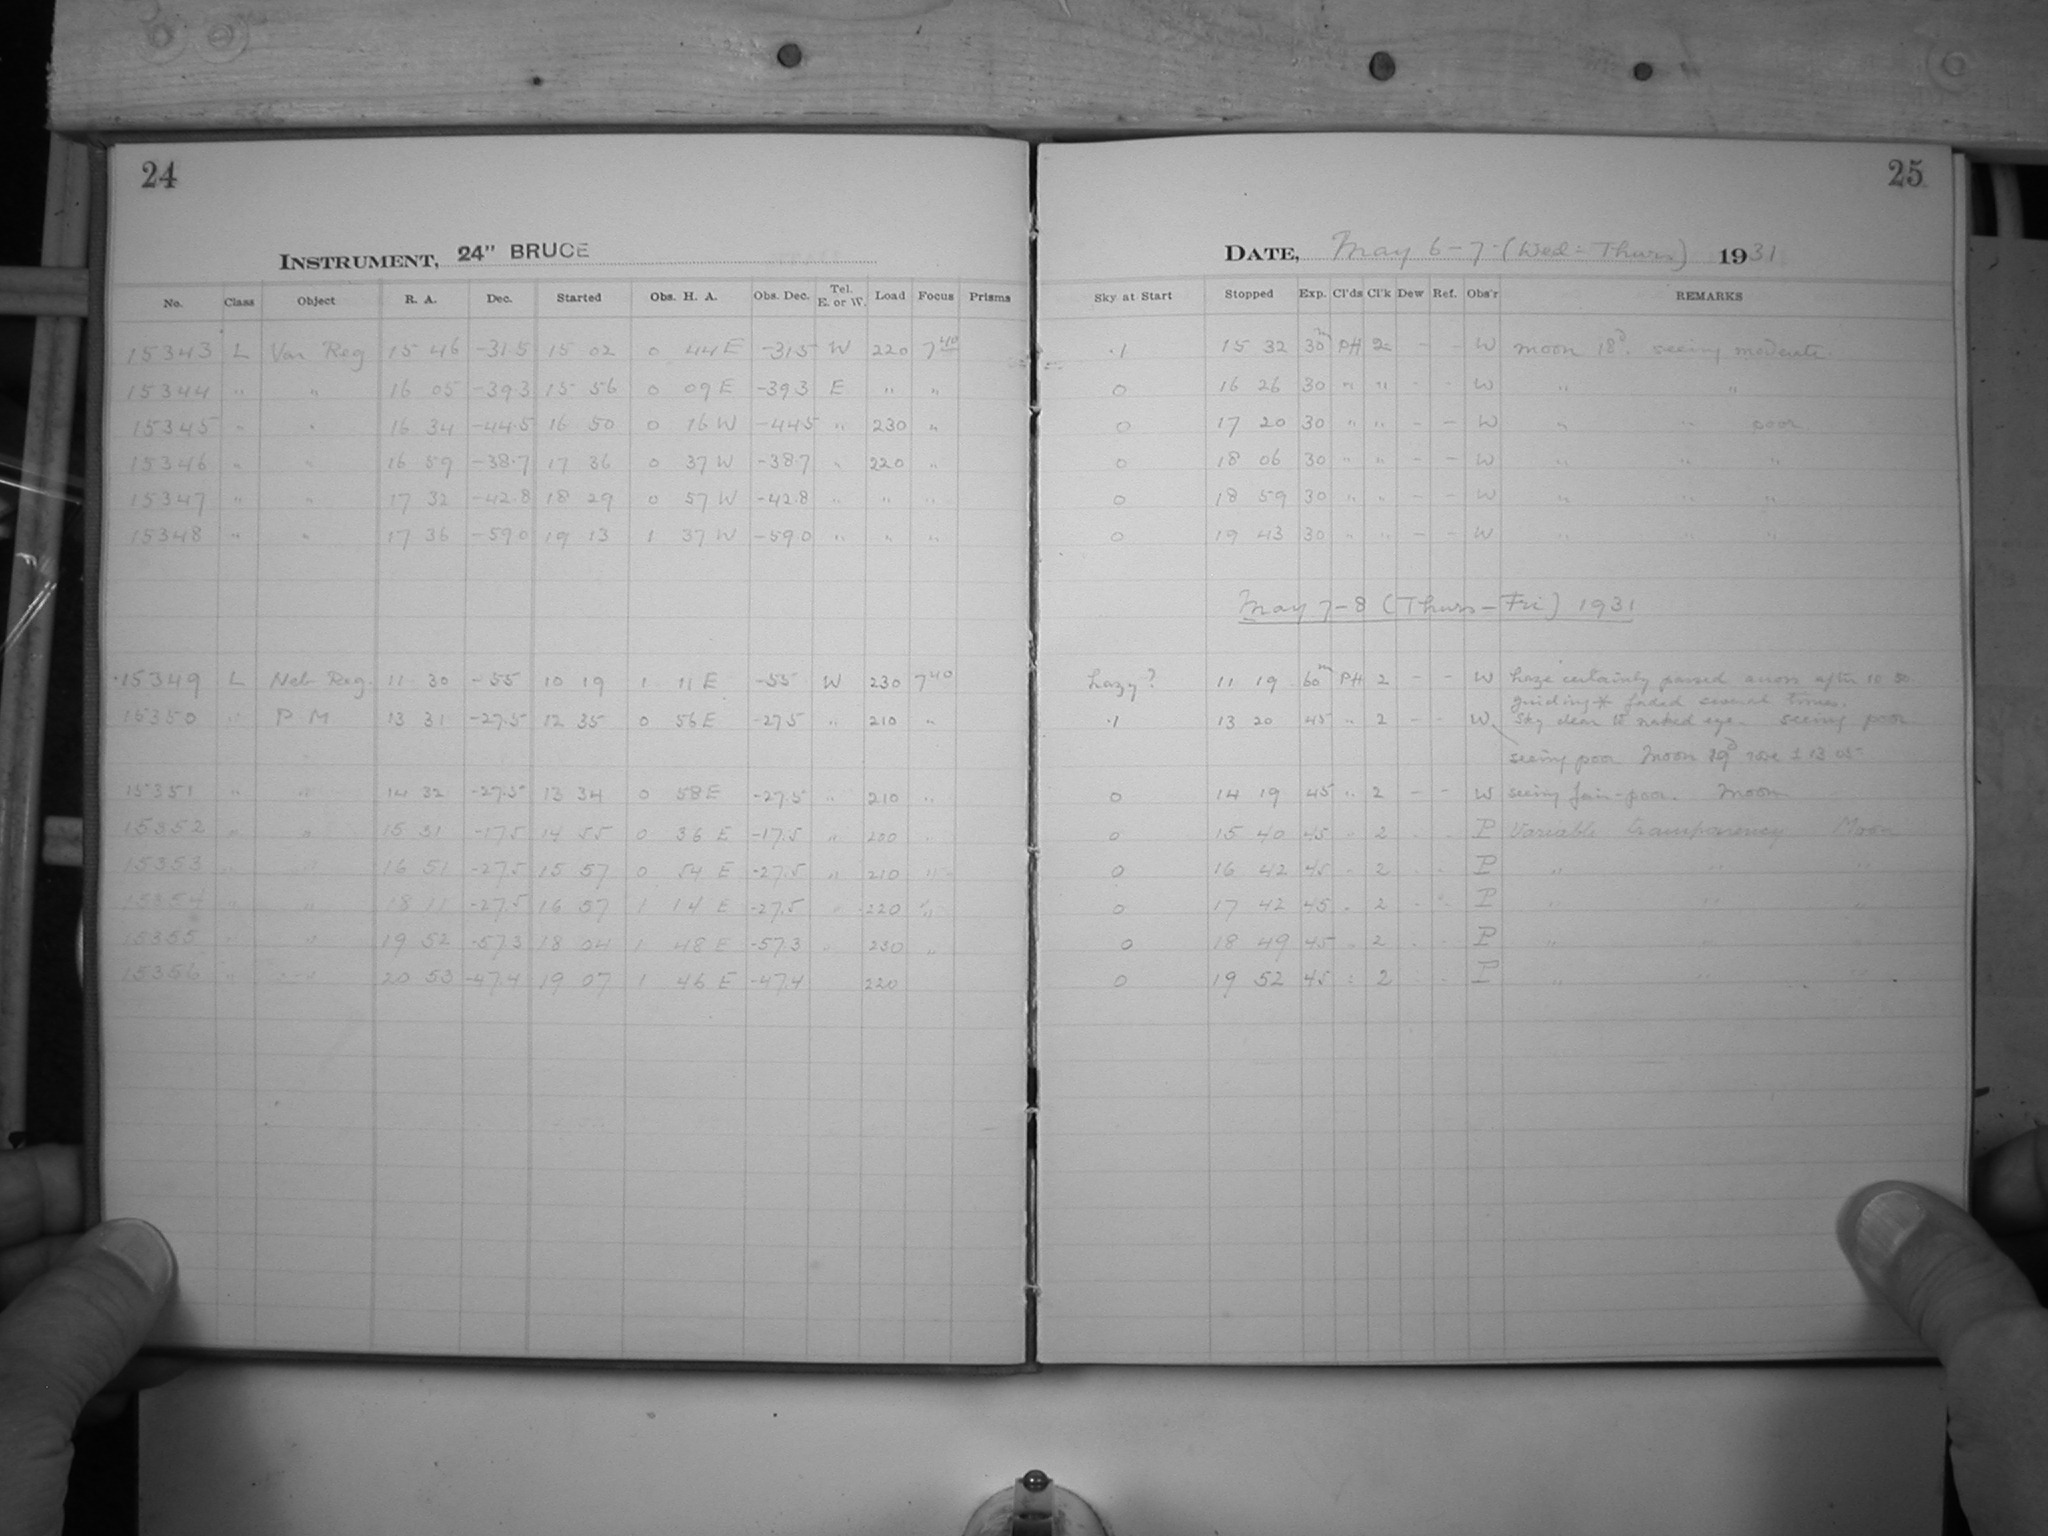 24
INSTRUMENT, 24" BRUCE
No. Class Object R. A. Dec. Started Obs. H. A. Obs. Dec. Tel. E. or W. Load Focus Prisms
15343 L Var Reg 15 46 -31.5 15 02 0 44 E -31.5 W 220 7 40
15344 " " 16 05 -39.3 15 56 0 09 E -39.3 E " "
15345 " " 16 34 -44.5 16 50 0 16 W -44.5 " 230 "
15346 " " 16 59 -38.7 17 36 0 37 W -38.7 " 220 "
15347 " " 17 32 -42.8 18 29 0 57 W -42.8 " " "
15348 " " 17 36 -59.0 19 13 1 37 W -59.0 " " "
15349 L Neb Reg. 11 30 -55 10 19 1 11 E -55 W 230 7 40
15350 " P M 13 31 -27.5 12 35 0 56 E -27.5 " 210 "
15351 " " 14 32 -27.5 13 34 0 58 E -27.5 " 210 "
15352 " " 15 31 -17.5 14 55 0 36 E -17.5 " 200 "
15353 " " 16 51 -27.5 15 57 0 54 E -27.5 " 210 "
15354 " " 18 11 -27.5 16 57 1 14 E -27.5 " 220 "
15355 " " 19 52 -57.3 18 04 1 48 E -57.3 " 230 "
15356 " " 20 53 -47.4 19 07 1 46 E -47.4 220
25
DATE, May 6-7 (Wed-Thurs) 1931
Sky at Start Stopped Exp. Cl'ds Cl'k Dew Ref. Obs'r REMARKS
.1 15 32 30m PH 2 - - W moon 18d. seeing moderate.
0 16 26 30 " " - - W " "
0 17 20 30 " " - - W " " poor
0 18 06 30 " " - - W " " "
0 18 59 30 " " - - W " " "
0 19 43 30 " " - - W " " "
May 7-8 (Thurs-Fri) 1931
hazy? 11 19 60m PH 2 - - W haze certainly passed across after 10 50
guiding * faded several times.
.1 13 20 45 " 2 - - W sky clear to naked eye. seeing poor
seeing poor Moon 19d rose ± 13 05
0 14 19 45 " 2 - - W seeing fair-poor. Moon
0 15 40 45 " 2 - - P Variable transparency Moon
0 16 42 45 " 2 - - P " " "
0 17 42 45 " 2 - - P " " "
0 18 49 45 " 2 - - P " "
0 19 52 45 " 2 - - P " "